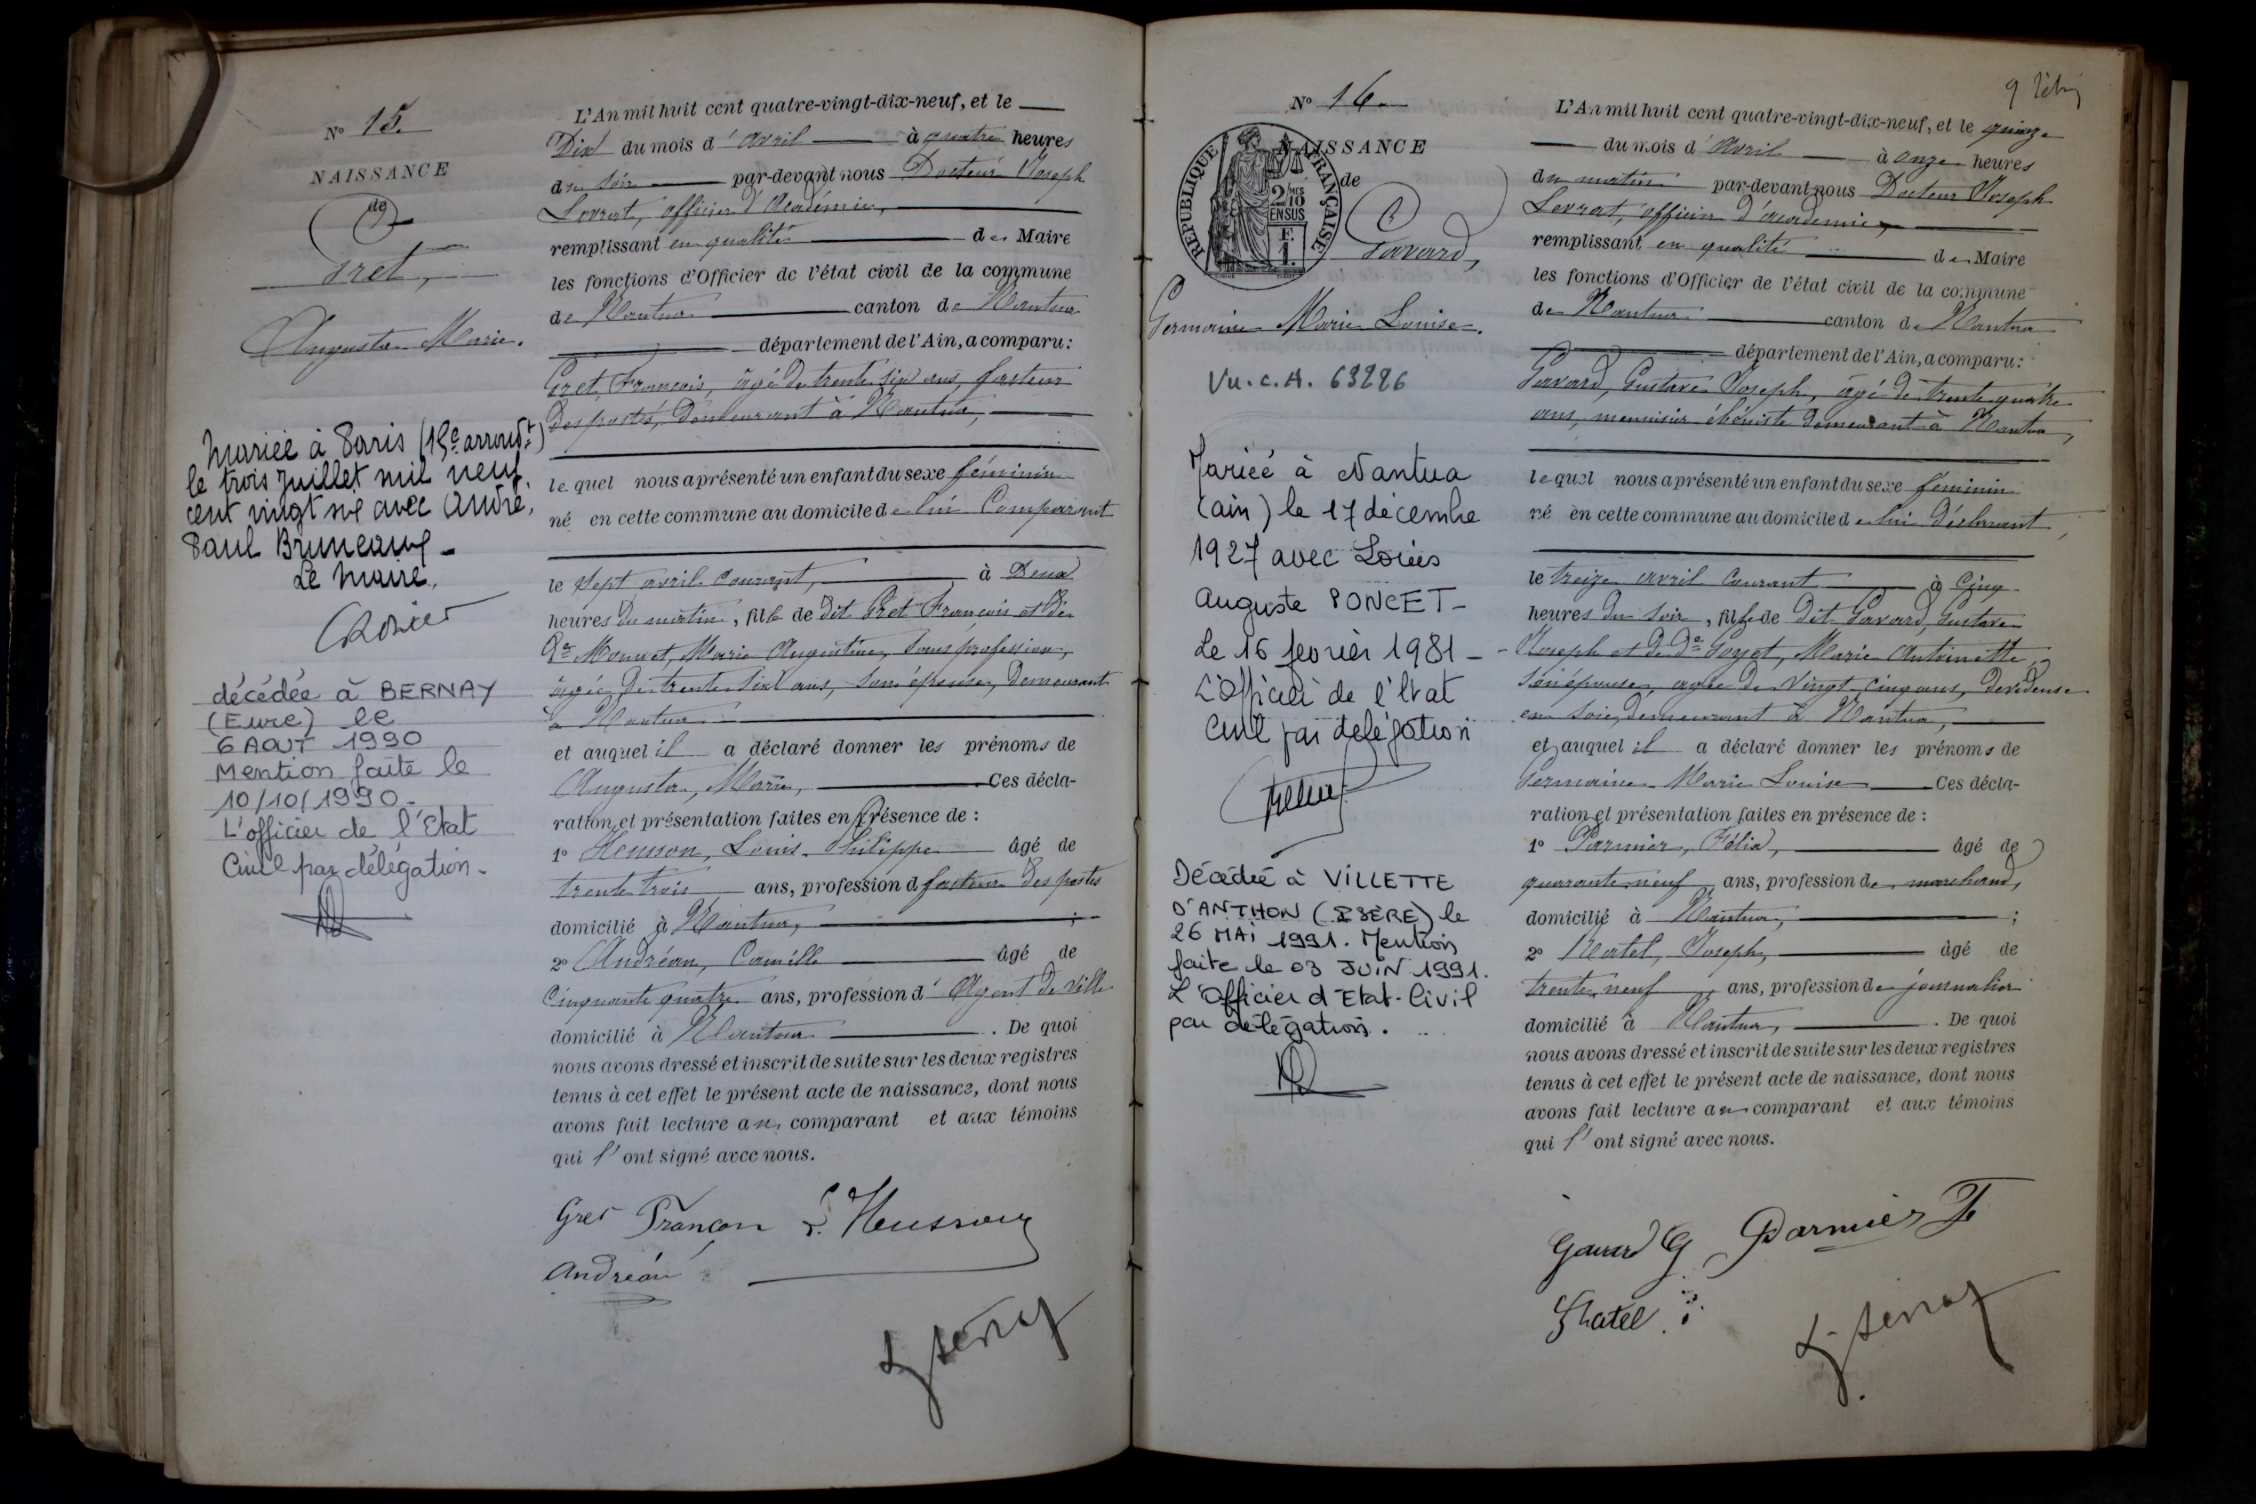 N° 15.
NAISSANCE
de
Gret,
Augusta Marie.
Mariée à Paris (15e arrondt)
le trois juillet mil neuf
cent vingt six avec André,
Paul Bruneau
Le Maire,
décédée à BERNAY
(Eure) le
6 AOUT 1990
Mention faite le
10/10/1990.
L'officier de l'Etat
Civil par délégation.
L'An mil huit cent quatre-vingt-dix-neuf, et le
Dix du mois d'avril à quatre heures
du soir par-devant nous Docteur Joseph
Levrat, officier d'Académie,
remplissant en qualité de Maire
les fonctions d'Officier de l'état civil de la commune
de Nantua canton de Nantua
département de l'Ain, a comparu:
Gret, François, âgé de trente six ans, facteur
des postes, demeurant à Nantua,
lequel nous a présenté un enfant du sexe féminin
né en cette commune au domicile de lui Comparant
le sept avril courant, à Deux
heures du matin, fille de dit Gret François et de
De Monnet, Marie Augustine, sans profession,
âgée de trente six ans, son épouse, demeurant
à Nantua
et auquel il a déclaré donner les prénoms de
Augusta, Marie, Ces décla-
ration et présentation faites en présence de :
1° Husson, Louis Philippe âgé de
trente trois ans, profession d facteur des postes
domicilié à Nantua, ;
2° Andréan, Camille âgé de
Cinquante quatre ans, profession d'Agent de ville
domicilié à Nantua . De quoi
nous avons dressé et inscrit de suite sur les deux registres
tenus à cet effet le présent acte de naissance, dont nous
avons fait lecture au comparant et aux témoins
qui l'ont signé avec nous.
Gret François L. Husson
Andréan
N° 16.
NAISSANCE
de
RÉPUBLIQUE FRANÇAISE
2/10
EN SUS
Gavard,
Germaine Marie Louise.
Vu. C.A. 63226
Mariée à Nantua
(ain) le 17 décembre
1927 avec Louis
Auguste PONCET-
Le 16 février 1981 -
L'Officier de l'Etat
Civil par délégation
Décédée à VILLETTE
D'ANTHON (ISÈRE) le
26 MAI 1991. Mention
faite le 03 JUIN 1991.
L'Officier d'Etat-Civil
par délégation.
L'An mil huit cent quatre-vingt-dix-neuf, et le quinze
du mois d'Avril à onze heures
du matin par-devant nous Docteur Joseph
Levrat, officier d'académie,
remplissant en qualité de Maire
les fonctions d'Officier de l'état civil de la commune
de Nantua canton de Nantua
département de l'Ain, a comparu:
Gavard, Gustave Joseph, âgé de trente quatre
ans, menuisier ébéniste demeurant à Nantua,
lequel nous a présenté un enfant du sexe féminin
né en cette commune au domicile de lui déclarant,
le treize avril courant à Cinq
heures du soir, fille de dit Gavard, Gustave
Joseph et de De Goyet, Marie Antoinette,
son épouse, agée de vingt cinq ans, dévideuse
en soie, demeurant à Nantua,
et auquel il a déclaré donner les prénoms de
Germaine Marie Louise Ces décla-
ration et présentation faites en présence de :
1° Parmier, Félix, âgé de
quarante neuf ans, profession de marchand,
domicilié à Nantua, ;
2° Joseph, âgé de
trente neuf ans, profession de journalier
domicilié à Nantua, . De quoi
nous avons dressé et inscrit de suite sur les deux registres
tenus à cet effet le présent acte de naissance, dont nous
avons fait lecture au comparant et aux témoins
qui l'ont signé avec nous.
Gavard G Parmier F